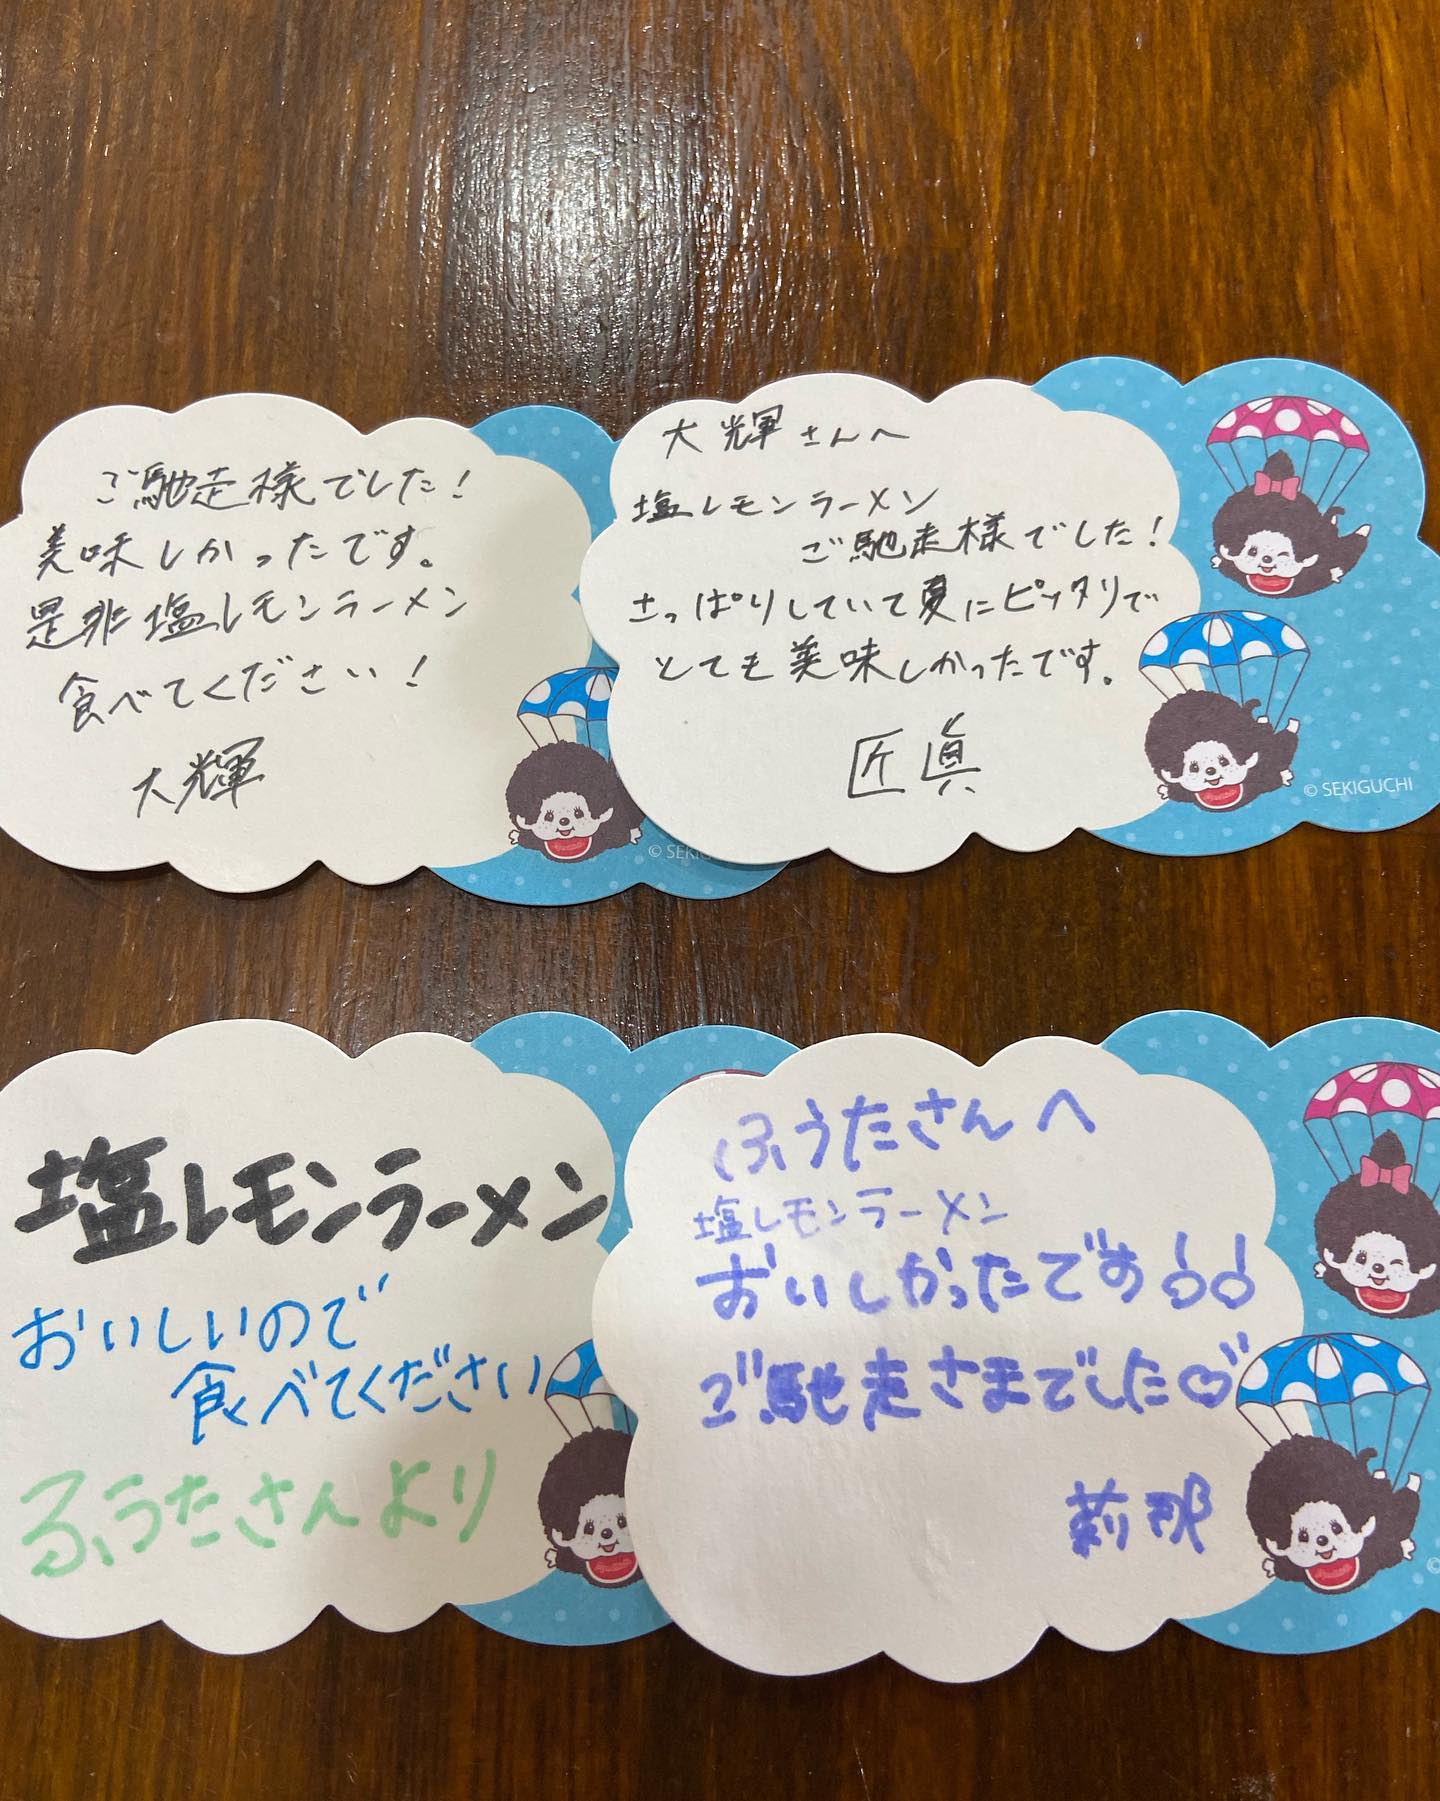 ご馳走様でした!
美味しかったです。
是非塩レモンラーメン
食べてください!
大輝
© SEKIGUCHI
大輝さんへ
塩レモンラーメン
ご馳走様でした!
さっぱりしていて夏にピッタリで
とても美味しかったです。
匠眞
© SEKIGUCHI
塩レモンラーメン
おいしいので
食べてください
ふうたさんより
ふうたさんへ
塩レモンラーメン
おいしかったです!!
ご馳走さまでした♡
莉那
©